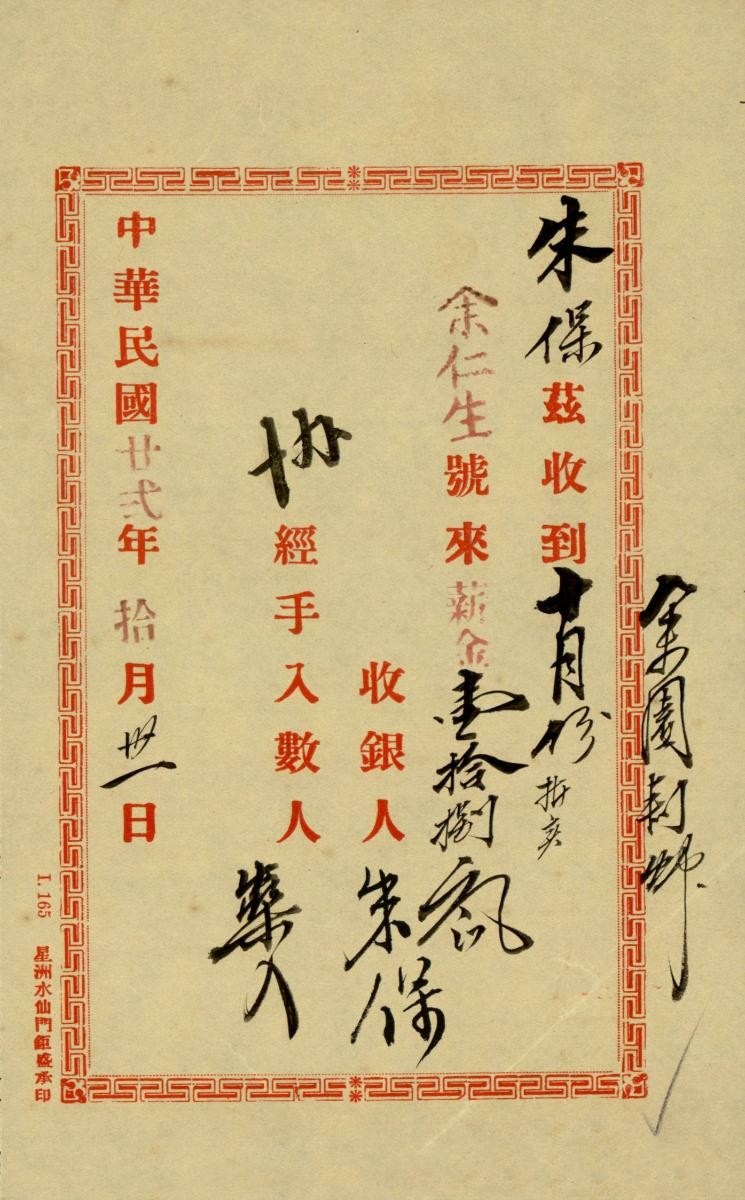 余園
朱保茲收到十月份
余仁生號來薪金壹拾捌
收銀人朱保
經手入數人 入
中華民國廿弍年拾月卅一日
I. 165 星洲水仙門鉅盛承印